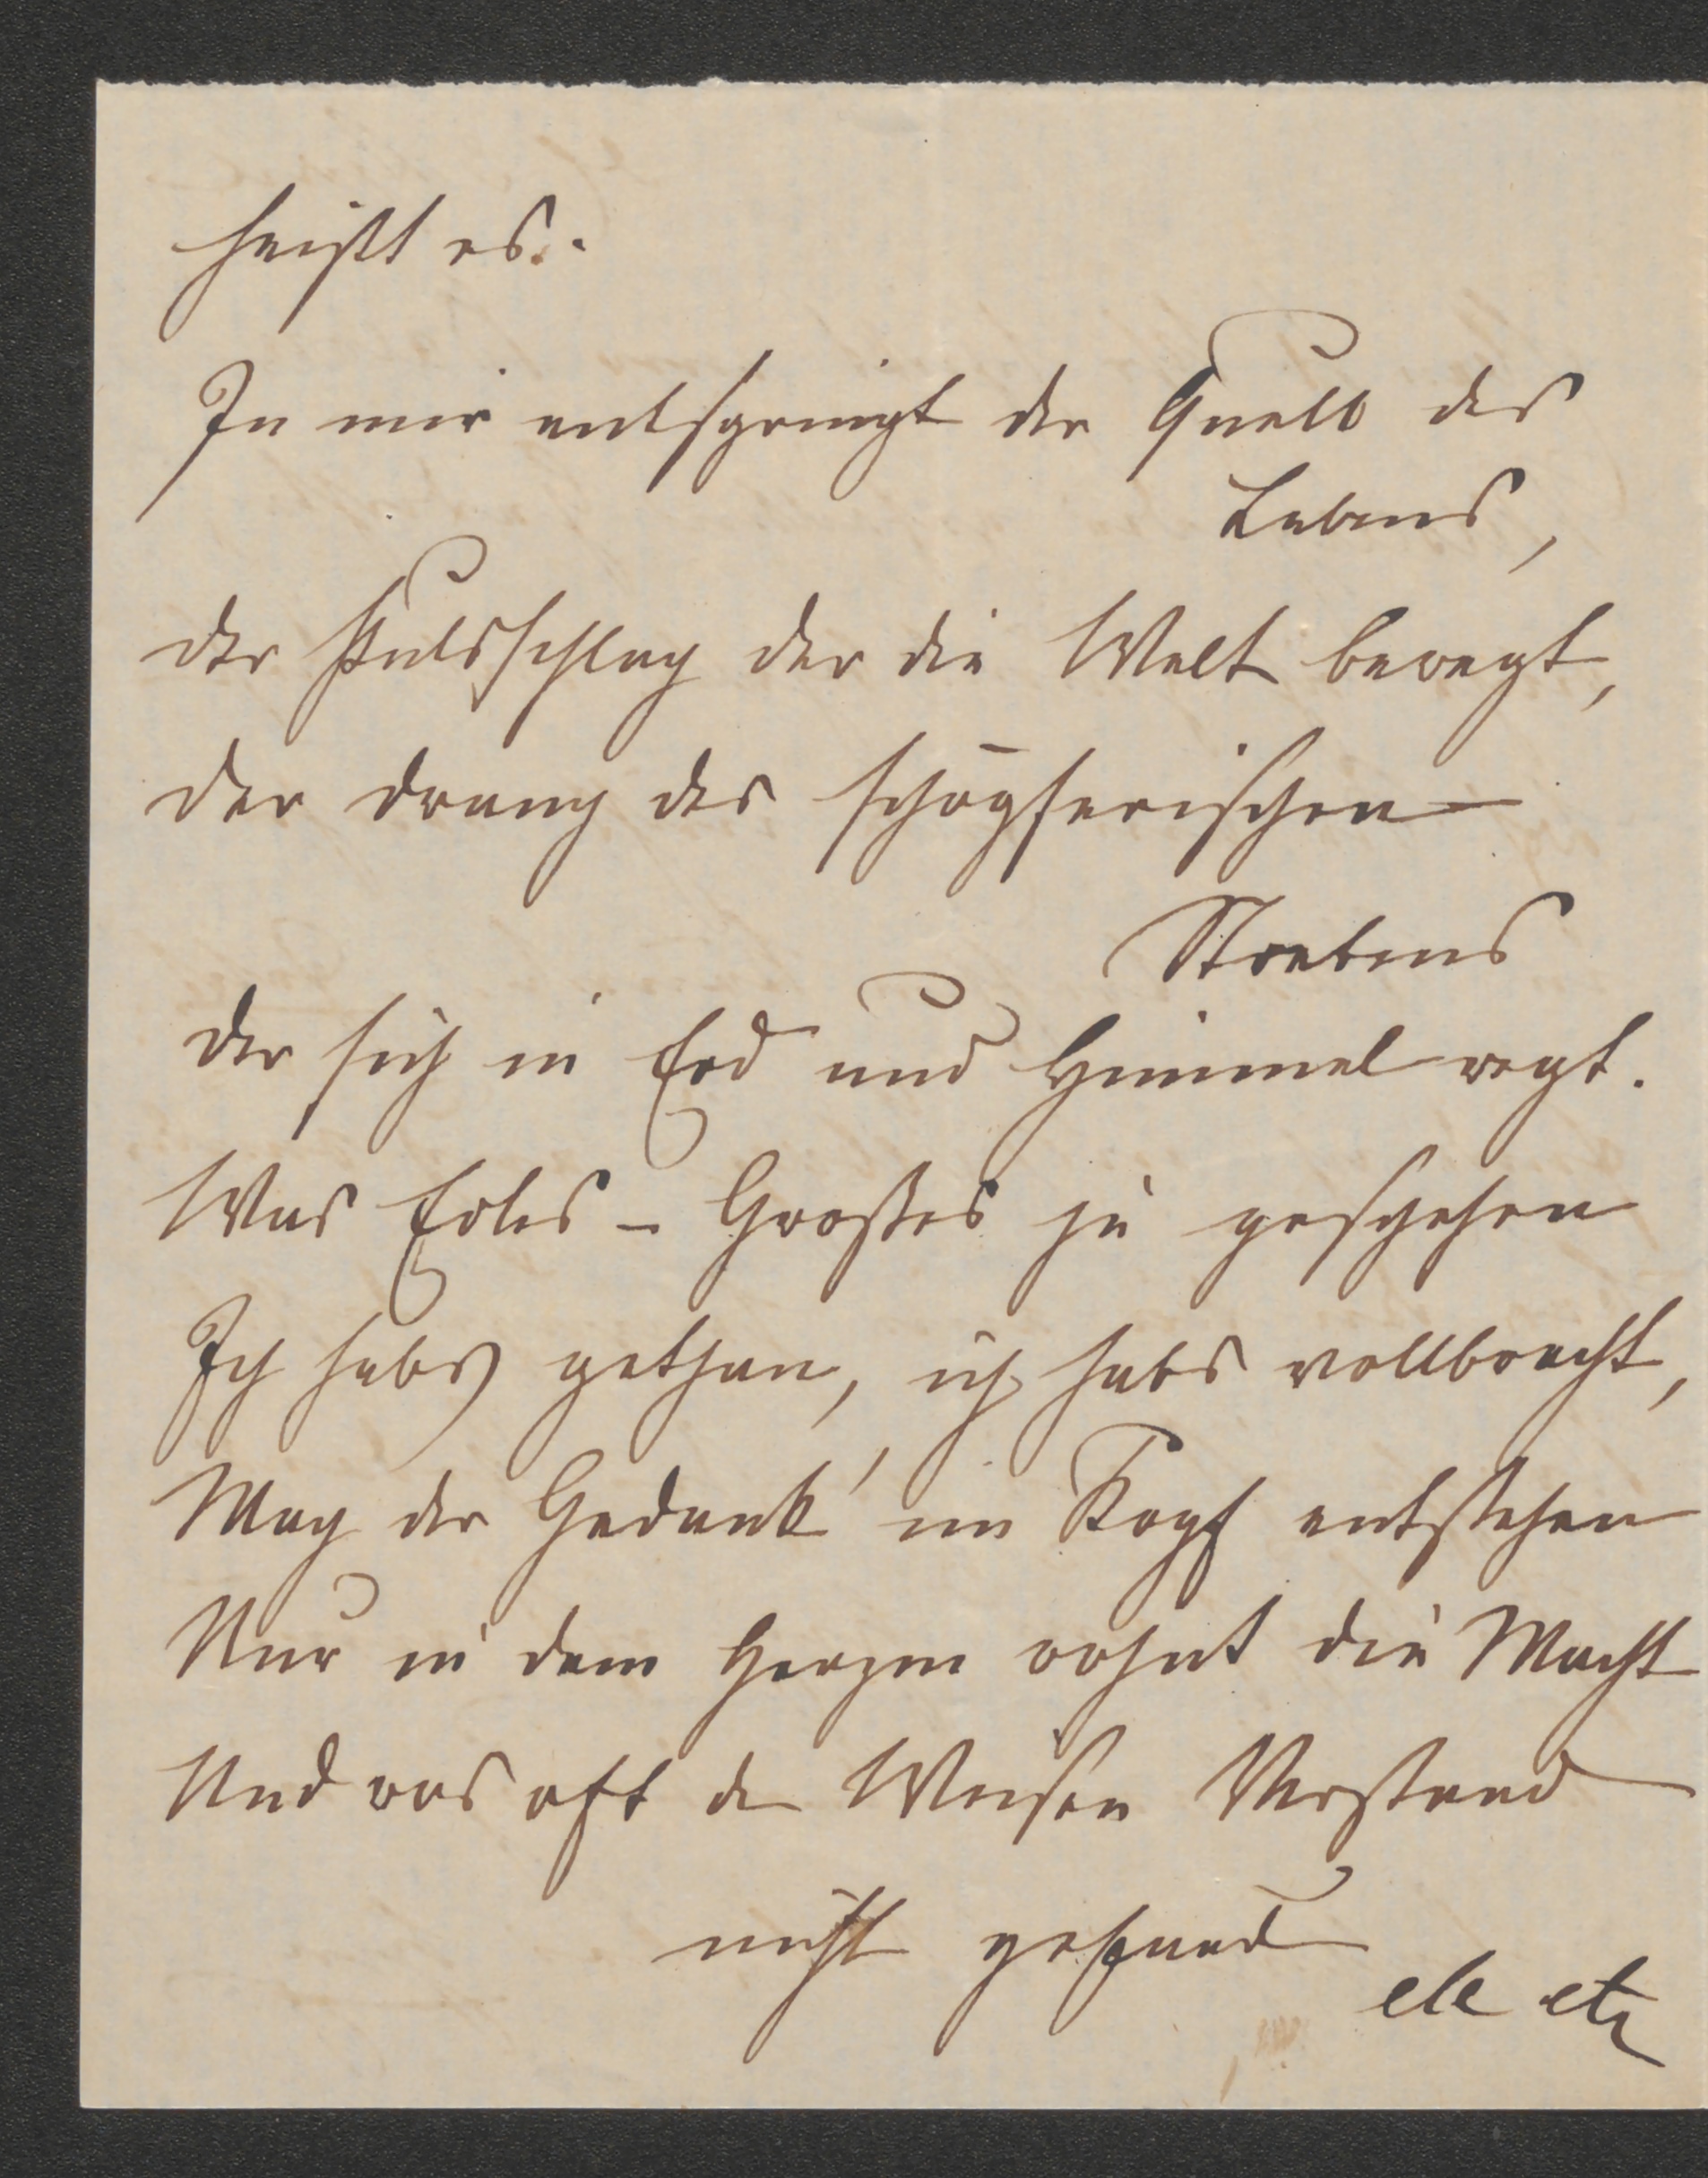 heißt es.
In mir entspringt der Quell des
Lebens,
der Pulsschlag der die Welt bewegt,
der Drang des schöpferischen
Strebens
der sich in Erd und Himmel regt.
Was Edles – Großes je geschehen
Ich habs gethan, ich habs vollbracht,
Mag der Gedank' im Kopf entstehen
Nur in dem Herzen wohnt die Macht
Und was oft der Weisen Verstand
nicht gefunden
etc etc